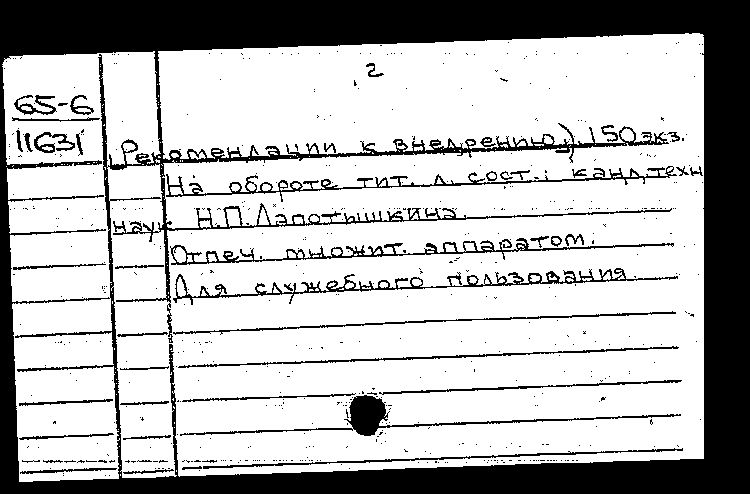 2
65-6
11631
(Рекомендации к внедрению). 150 экз.
На обороте тит. л. сост.: канд. техн
наук Н.П. Лапотышкина.
Отпеч. множит. аппаратом.
Для служебного пользования.